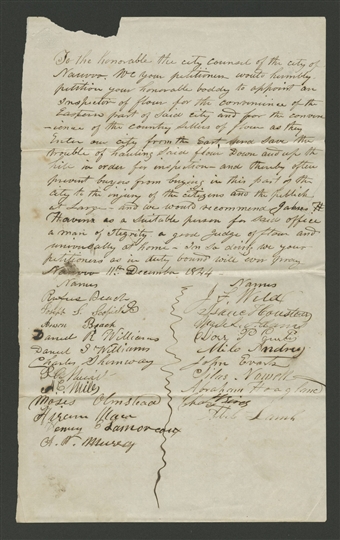 To the honorable the city counsel of the city of
Nauvoo, We your petitioners would humbly
petition your honorable boddy to appoint an
Inspector of flour for the convenience of the
Eastern part of said city and for the conven
ience of the country sellers of flour as they
Enter our city from the East, And Save the
trouble of hauling Said flour down and up the
hill in order for inspection and thereby often
prevent buyers from buying in this part of the
city to the injury of the citizens and the publick
at Large - and we would recommend James H
as a Suitable person for Said office
a man of a good judge of flour and
universally at home - In So doing we your
petitioners as in duty bound will ever pray
Nauvoo 11th December 1844
Names Names
Rufus Beach J. F. Wild
Joseph L. Isaac Houston
Anson Beach
Daniel R Williams
Daniel Williams Milo Andres
Charles Shumway John Evarts
Silas Nowell
Miles Abraham Hoagland
Moses Olmstead
Hiram
Henry
A. N.